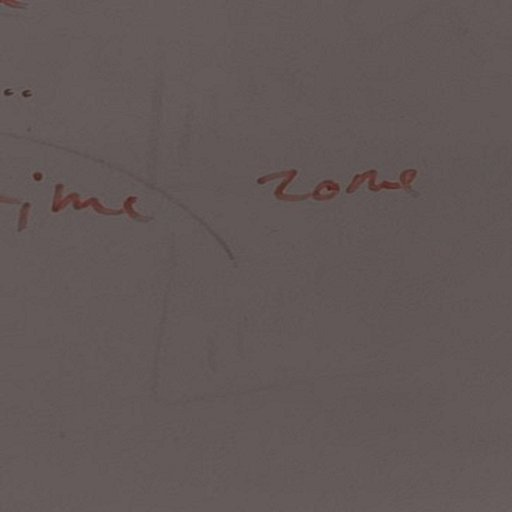 ..
time zone